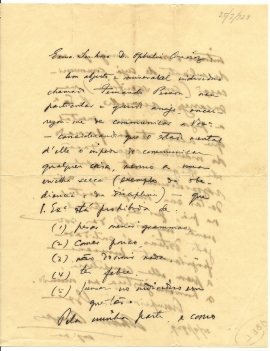 25/9/929
Exma. Senhora D. Ophelia Queiroz:
Um abjecto e miseravel individuo
chamado Fernando Pessoa, meu
particular e querido amigo, encar-
regou-me de communicar a V. Ex.ª
— considerando que o estado mental
d'elle o impede de communicar
qualquer coisa, mesmo a uma
ervilha secca (exemplo da obe-
diencia e da disciplina) — que
V. Ex.ª está prohibida de:
(1) pesar menos grammas,
(2) comer pouco,
(3) não dormir nada,
(4) ter febre,
(5) pensar no individuo em
questão.
Pela minha parte, e como